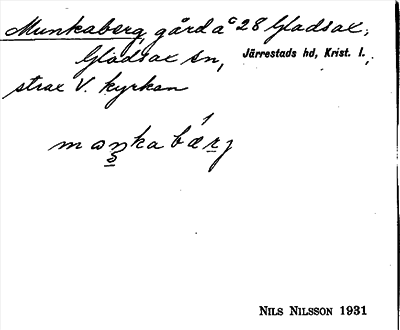 Munkaberg, gård å c 28 Gladsax,
Gladsax sn, Järrestads hd, Krist. l.,
strax V. kyrkan
NILS NILSSON 1931